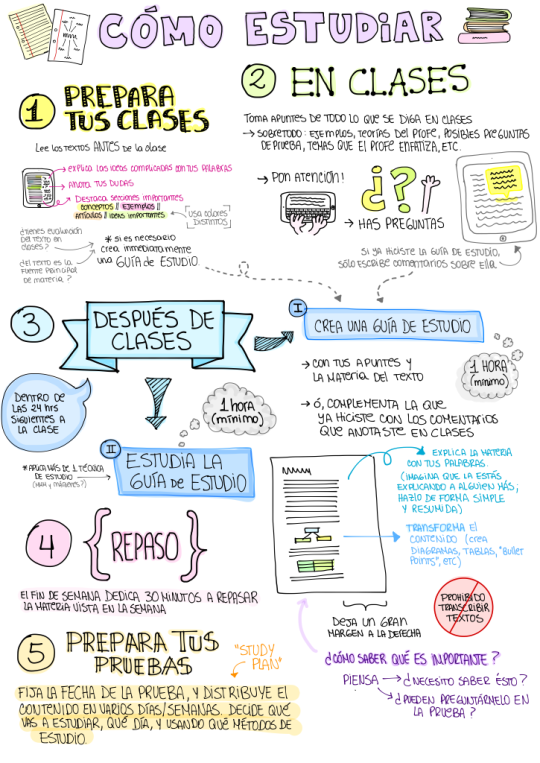 CÓMO ESTUDIAR
1 PREPARA
TUS CLASES
Lee los textos ANTES de la clase
→ EXPLICA LAS IDEAS COMPLICADAS CON TUS PALABRAS
→ ANOTA TUS DUDAS
→ DESTACA SECCIONES IMPORTANTES
CONCEPTOS // EJEMPLOS //
ARTÍCULOS // IDEAS IMPORTANTES
USA COLORES
DISTINTOS
¿TIENES EVALUACIÓN
DEL TEXTO EN
CLASES?
¿EL TEXTO ES LA
FUENTE PRINCIPAL
DE MATERIA?
* SI ES NECESARIO
CREA INMEDIATAMENTE
UNA GUÍA DE ESTUDIO
2 EN CLASES
TOMA APUNTES DE TODO LO QUE SE DIGA EN CLASES
→ SOBRETODO: EJEMPLOS, TEORÍAS DEL PROFE, POSIBLES PREGUNTAS
DE PRUEBA, TEMAS QUE EL PROFE ENFATIZA, ETC.
→ PON ATENCIÓN!
¿?
→ HAS PREGUNTAS
SI YA HICISTE LA GUÍA DE ESTUDIO,
SÓLO ESCRIBE COMENTARIOS SOBRE ELLA
3 DESPUÉS DE
CLASES
DENTRO DE
LAS 24 hrs
SIGUIENTES A
LA CLASE
I CREA UNA GUÍA DE ESTUDIO
→ CON TUS APUNTES Y
LA MATERIA DEL TEXTO
→ Ó, COMPLEMENTA LA QUE
YA HICISTE CON LOS COMENTARIOS
QUE ANOTASTE EN CLASES
1 HORA
(mínimo)
1 hora
(mínimo)
II ESTUDIA LA
GUÍA DE ESTUDIO
* APLICA MÁS DE 1 TÉCNICA
DE ESTUDIO
→ EXPLICA LA MATERIA
CON TUS PALABRAS.
(IMAGINA QUE LA ESTÁS
EXPLICANDO A ALGUIEN MÁS;
HAZLO DE FORMA SIMPLE
Y RESUMIDA)
→ TRANSFORMA EL
CONTENIDO (CREA
DIAGRAMAS, TABLAS, "BULLET
POINTS", ETC)
DEJA UN GRAN
MARGEN A LA DERECHA
PROHIBIDO
TRANSCRIBIR
TEXTOS
¿CÓMO SABER QUÉ ES IMPORTANTE?
PIENSA → ¿NECESITO SABER ÉSTO?
→ ¿PUEDEN PREGUNTÁRMELO EN
LA PRUEBA?
4 {REPASO}
EL FIN DE SEMANA DEDICA 30 MINUTOS A REPASAR
LA MATERIA VISTA EN LA SEMANA
5 PREPARA TUS
PRUEBAS
"STUDY
PLAN"
FIJA LA FECHA DE LA PRUEBA, Y DISTRIBUYE EL
CONTENIDO EN VARIOS DÍAS/SEMANAS. DECIDE QUÉ
VAS A ESTUDIAR, QUÉ DÍA, Y USANDO QUÉ MÉTODOS DE
ESTUDIO.